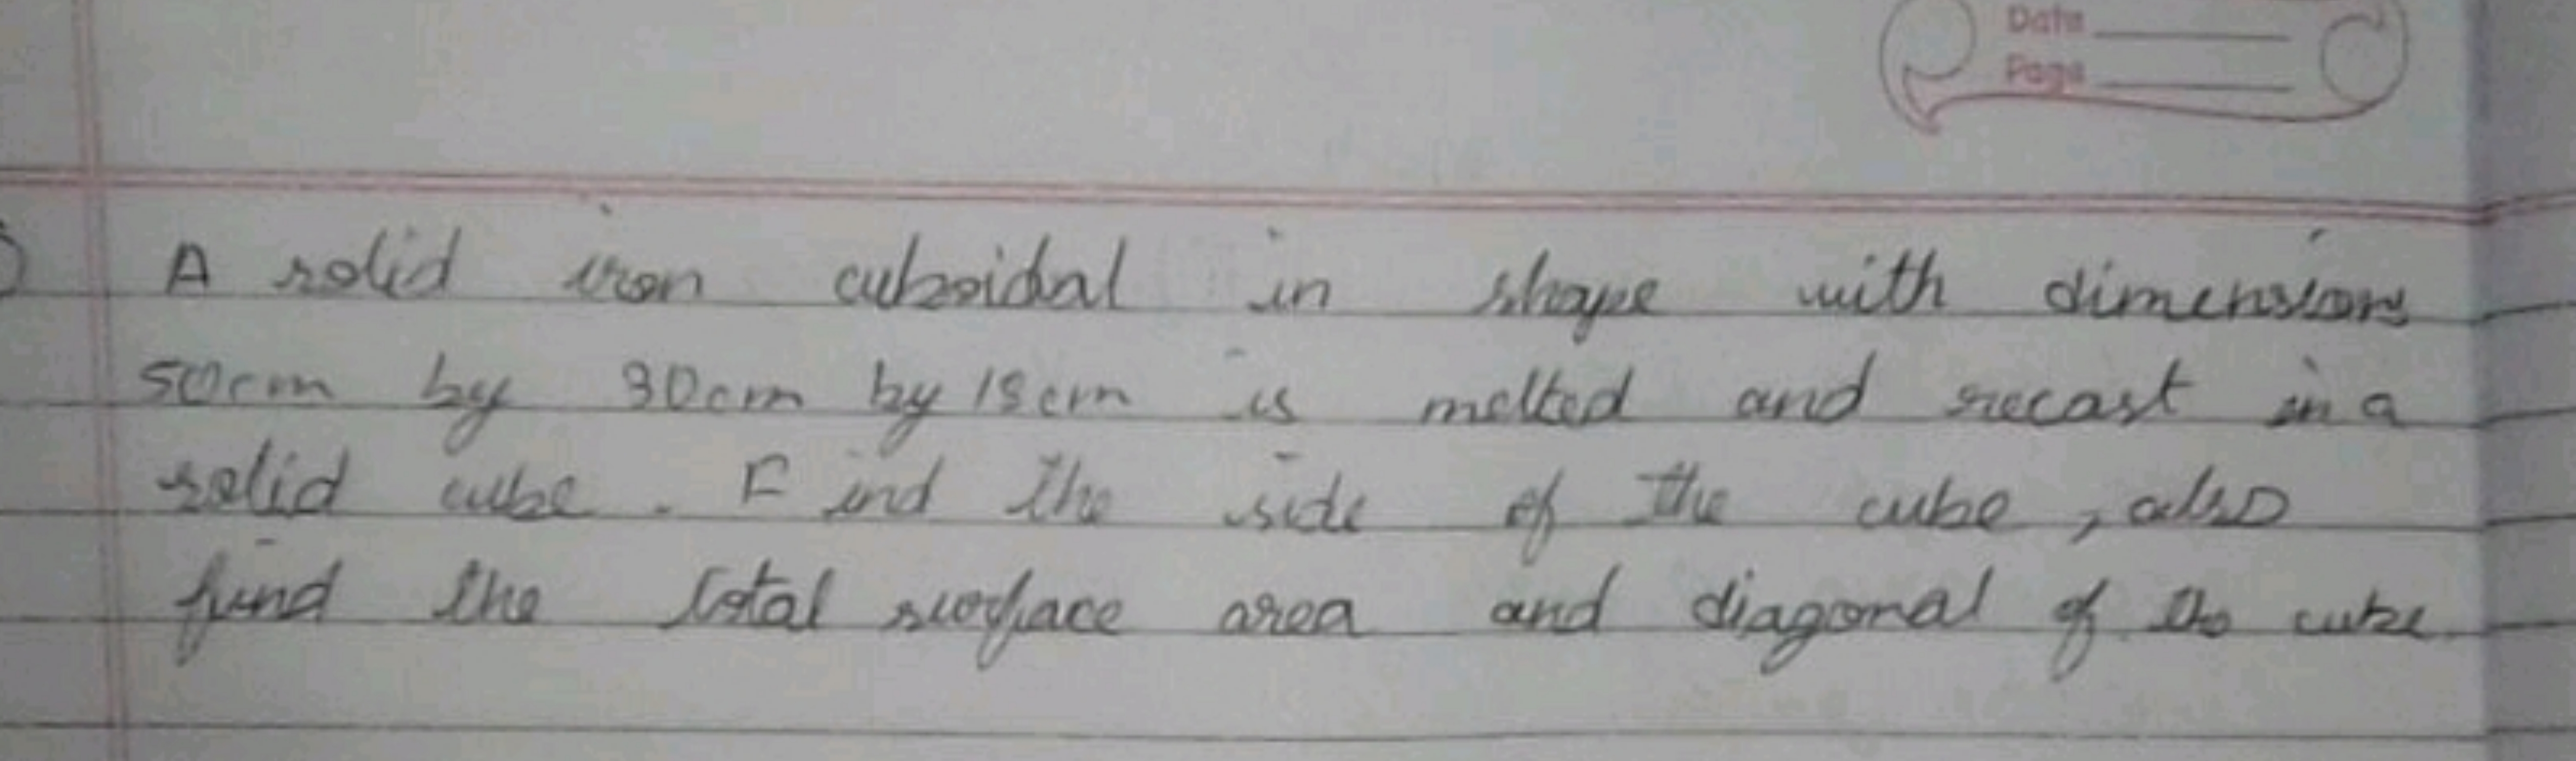 Date
Page
A solid iron cuboidal in shape with dimensions
50cm by 30cm by 18cm is melted and recast in a
solid cube. Find the side of the cube, also
find the total surface area and diagonal of the cube